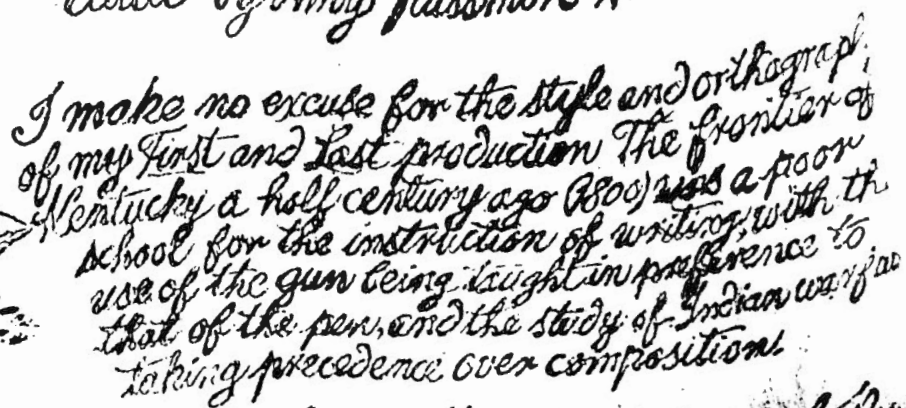 I make no excuse for the style and orthograph
of my First and Last production The frontier of
Kentucky a half century ago (1800) was a poor
school for the instruction of writing, with th
use of the gun being taught in preference to
that of the pen, and the study of Indian warfar
taking precedence over composition.